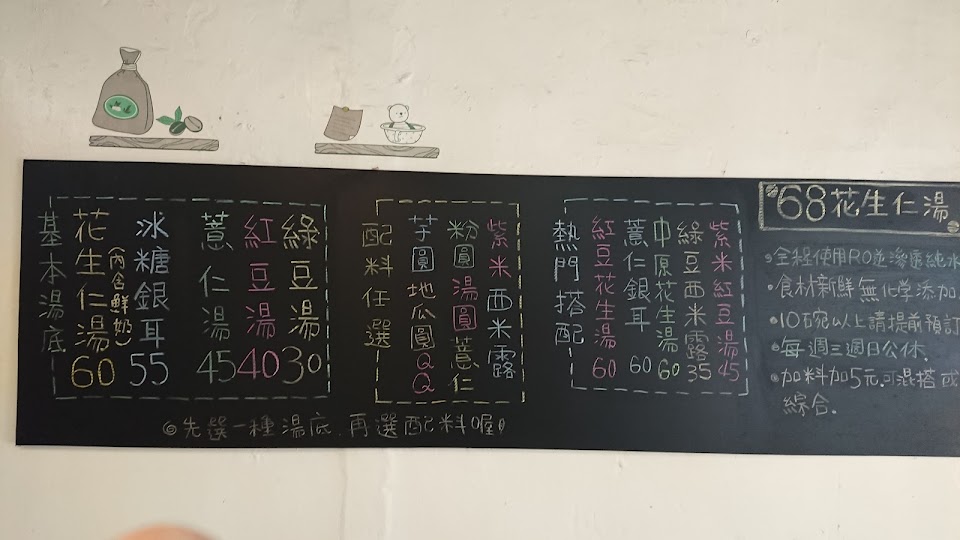 基本湯底
花生仁湯 60
(內含鮮奶)
冰糖銀耳 55
薏仁湯 45
紅豆湯 40
綠豆湯 30
配料任選
芋圓 地瓜圓QQ
粉圓 湯圓 薏仁
紫米 西米露
熱門搭配
紅豆花生湯 60
薏仁銀耳 60
中原花生湯 60
綠豆西米露 35
紫米紅豆湯 45
◎先選一種湯底.再選配料喔!
68花生仁湯
全程使用RO逆滲透純水
•食材新鮮無化学添加
•10碗以上請提前預訂
•每週三週日公休.
•加料加5元.可混搭或
綜合.